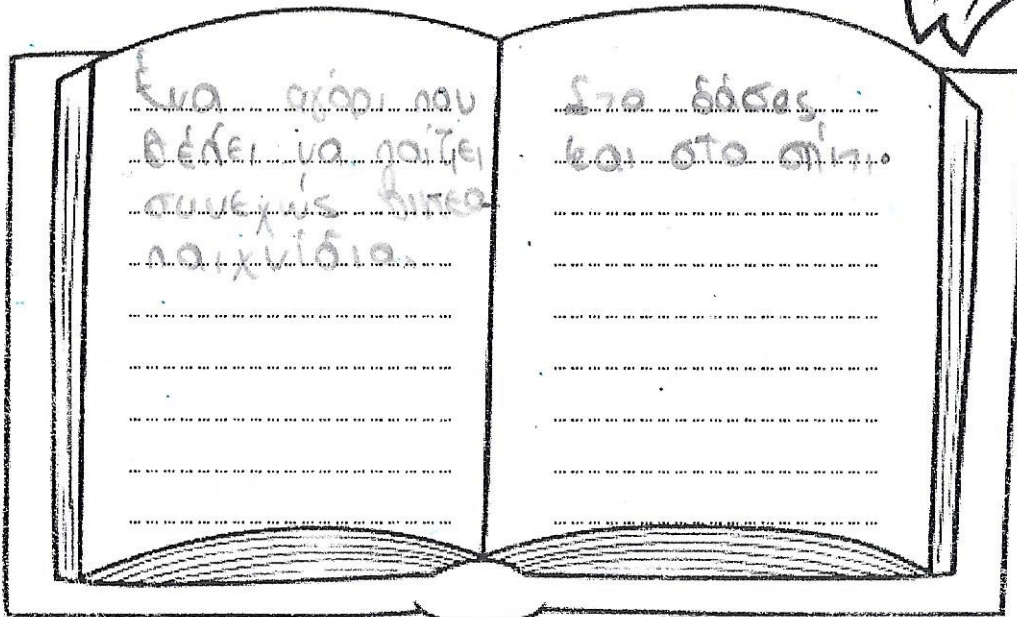 Ένα αγόρι που
θέλει να παίζει
συνεχώς βιντεο
παιχνίδια.
Στο δάσος
και στο σπίτι.